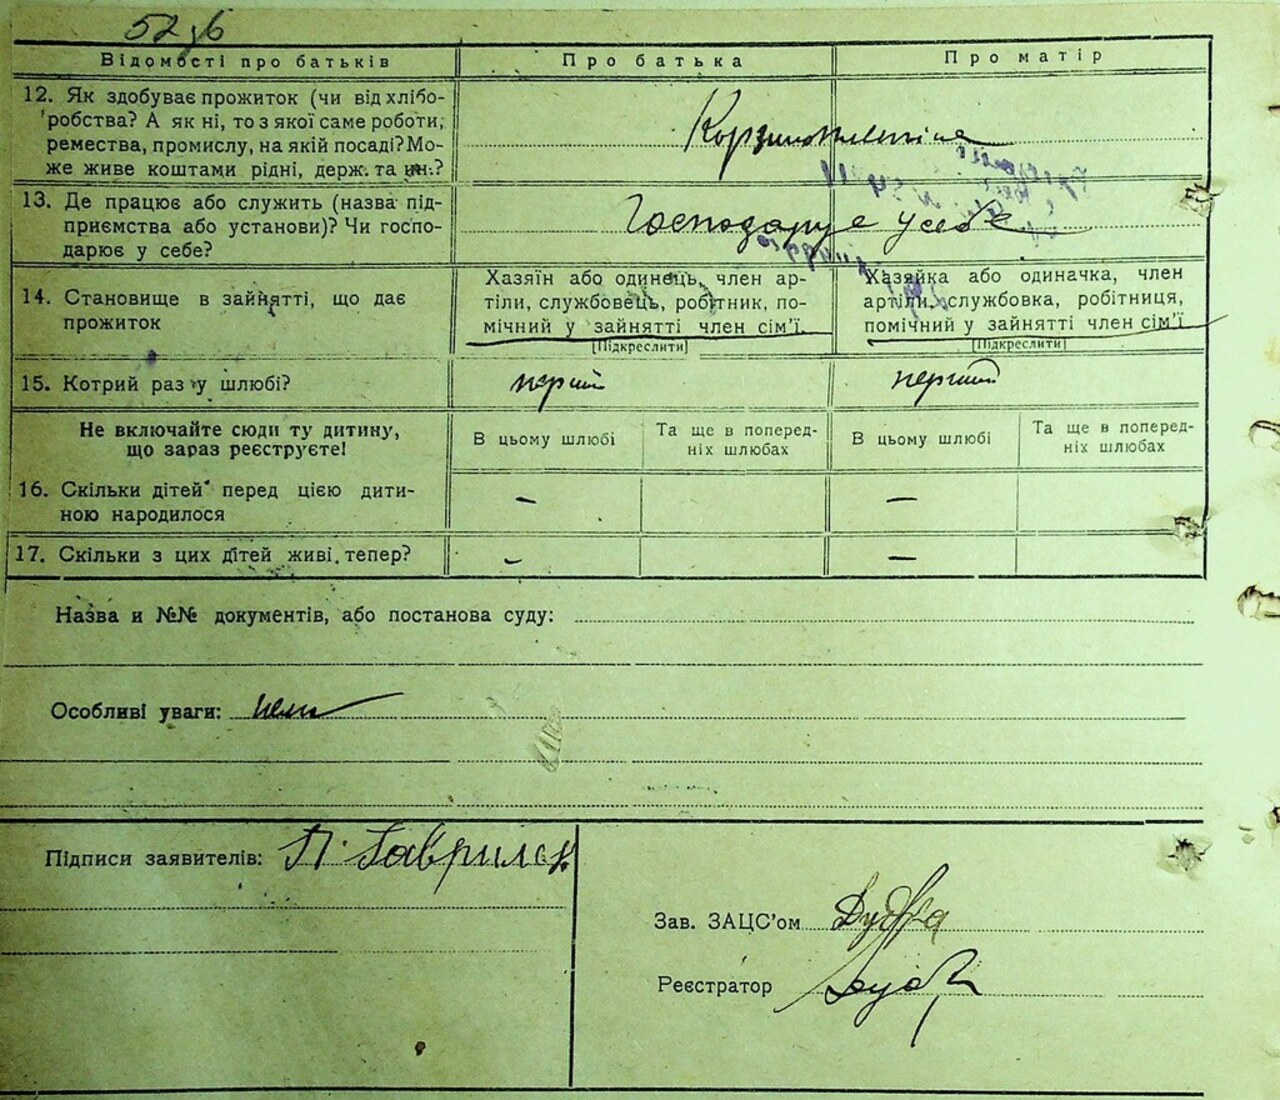 52 зб
Відомості про батьків
Про батька
Про матір
12. Як здобуває прожиток (чи від хлібо-
робства? А як ні, то з якої саме роботи,
ремества, промислу, на якій посаді? Мо-
же живе коштами рідні, держ. та ин.?
Корзиноплетіня
13. Де працює або служить (назва під-
приємства або установи)? Чи госпо-
дарює у себе?
Господарує у себе
14. Становище в зайнятті, що дає
прожиток
Хазяїн або одинець, член ар-
тіли, службовець, робітник, по-
мічний у зайнятті член сім'ї.
[Підкреслити]
Хазяйка або одиначка, член
артіли, службовка, робітниця,
помічний у зайнятті член сім'ї
[Підкреслити]
15. Котрий раз у шлюбі?
перший
перший
Не включайте сюди ту дитину,
що зараз реєструєте!
В цьому шлюбі
Та ще в поперед-
ніх шлюбах
В цьому шлюбі
Та ще в поперед-
ніх шлюбах
16. Скільки дітей перед цією дити-
ною народилося
—
—
17. Скільки з цих дітей живі тепер?
—
—
Назва и №№ документів, або постанова суду:
Особливі уваги: нема
Підписи заявителів: П. Гаврилен
Зав. ЗАЦС'ом Дудка
Реєстратор